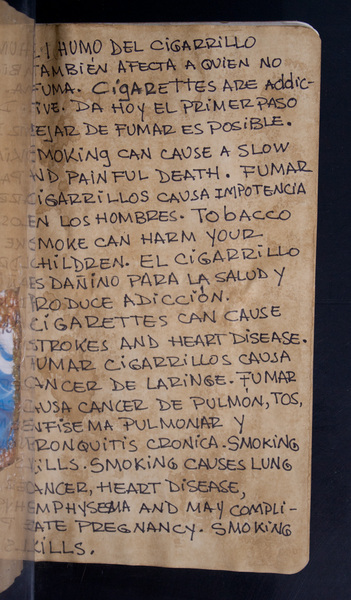 EL HUMO DEL CIGARRILLO
TAMBIÉN AFECTA A QUIEN NO
FUMA. CIGARETTES ARE ADDIC-
TIVE. DA HOY EL PRIMER PASO
DEJAR DE FUMAR ES POSIBLE.
SMOKING CAN CAUSE A SLOW
AND PAINFUL DEATH. FUMAR
CIGARRILLOS CAUSA IMPOTENCIA
EN LOS HOMBRES. TOBACCO
SMOKE CAN HARM YOUR
CHILDREN. EL CIGARRILLO
ES DAÑINO PARA LA SALUD Y
PRODUCE ADICCIÓN.
CIGARETTES CAN CAUSE
STROKES AND HEART DISEASE.
FUMAR CIGARRILLOS CAUSA
CANCER DE LARINGE. FUMAR
CAUSA CANCER DE PULMÓN, TOS,
ENFISEMA PULMONAR Y
BRONQUITIS CRONICA. SMOKING
KILLS. SMOKING CAUSES LUNG
CANCER, HEART DISEASE,
EMPHYSEMA AND MAY COMPLI-
CATE PREGNANCY. SMOKING
KILLS.